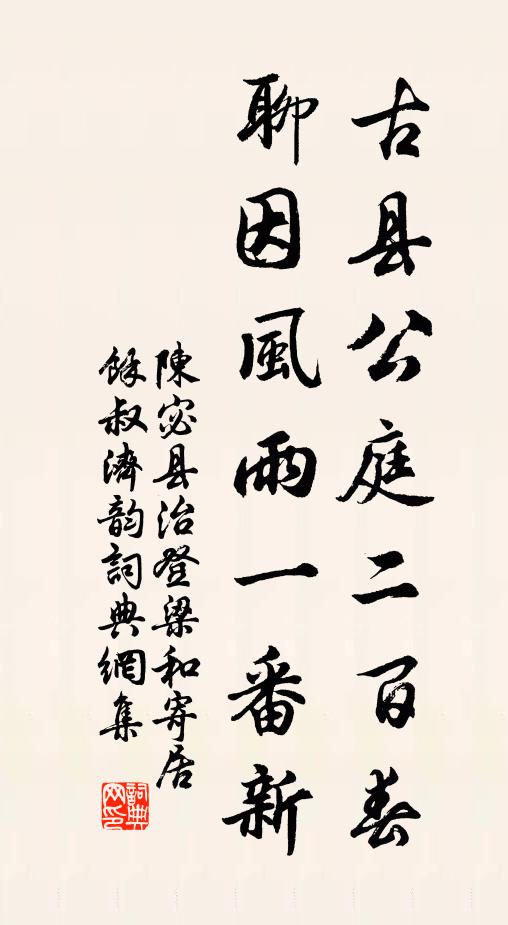 古县公庭二百春
聊因風雨一番新
陳宓县治登梁和寄居
餘叔濟韵詞典網集
詞典网印